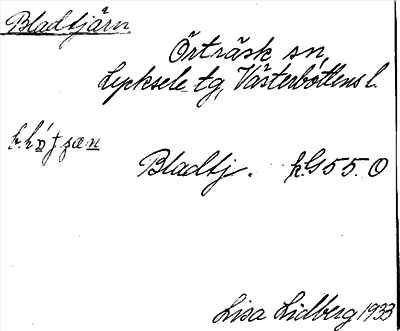 Bladtjärn
Örträsk sn,
Lycksele tg, Västerbottens l.
Bladtj. k.G 55. O
Lisa Lidberg 1933